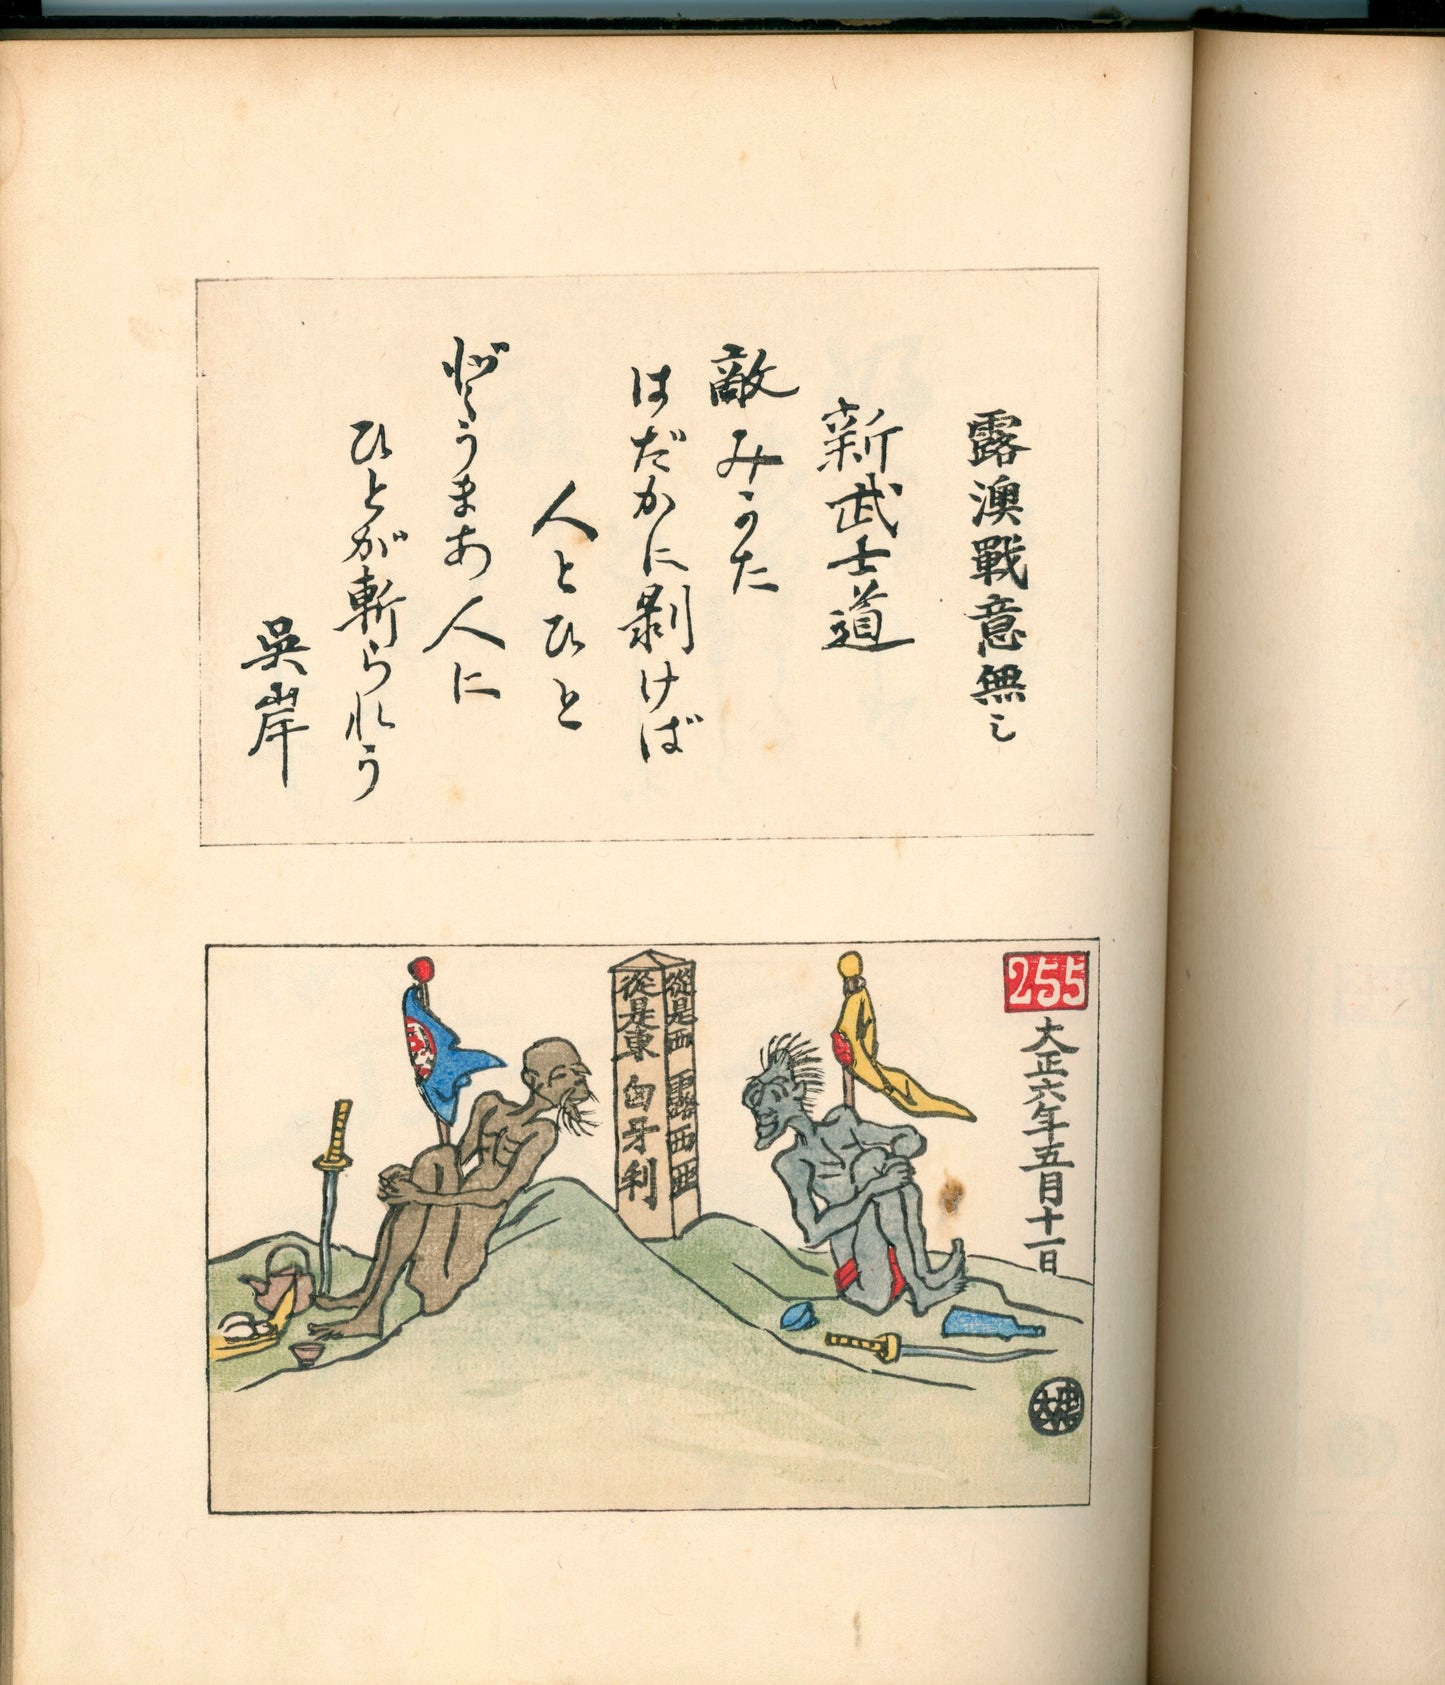 露澳戰意無し
新武士道
敵みかた
はだかに剥けば
人とひと
どうまあ人に
ひとが斬られう
呉岸
255
大正六年五月十一日
從是西 露西亞
從是東 匈牙利